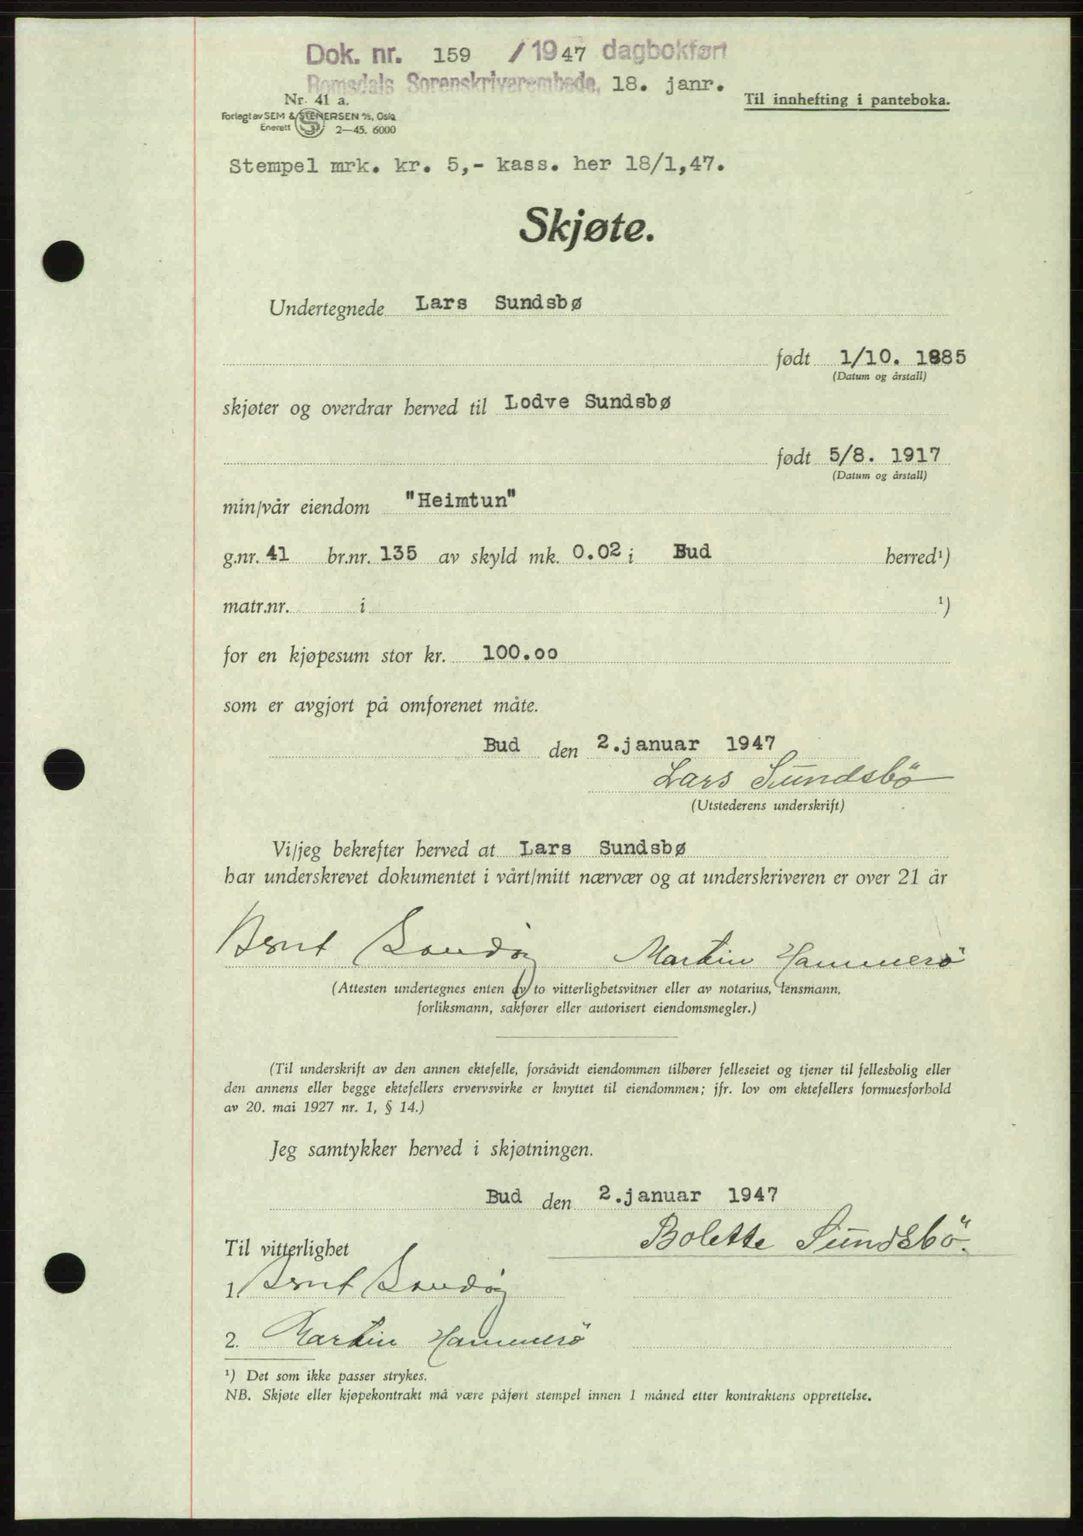 Dok. nr. 159 / 1947 dagbokført
Romsdals Sorenskriverembede, 18. janr.
Nr. 41 a.
Til innhefting i panteboka.
Forlegt av SEM & STENERSEN A/S, Oslo
Enerett 2—45. 6000
Stempel mrk. kr. 5,- kass. her 18/1,47.
Skjøte.
Undertegnede Lars Sundsbø
født 1/10. 1885
(Datum og årstall)
skjøter og overdrar herved til Lodve Sundsbø
født 5/8. 1917
(Datum og årstall)
min/vår eiendom "Heimtun"
g.nr. 41 br.nr. 135 av skyld mk. 0.02 i Bud herred¹)
matr.nr. i ¹)
for en kjøpesum stor kr. 100.00
som er avgjort på omforenet måte.
Bud den 2.januar 1947
Lars Sundsbö
(Utstederens underskrift)
Vi/jeg bekrefter herved at Lars Sundsbø
har underskrevet dokumentet i vårt/mitt nærvær og at underskriveren er over 21 år
Bernt Sandøy Martin Hammerö
(Attesten undertegnes enten av to vitterlighetsvitner eller av notarius, lensmann,
forliksmann, sakfører eller autorisert eiendomsmegler.)
(Til underskrift av den annen ektefelle, forsåvidt eiendommen tilhører felleseiet og tjener til fellesbolig eller
den annens eller begge ektefellers ervervsvirke er knyttet til eiendommen; jfr. lov om ektefellers formuesforhold
av 20. mai 1927 nr. 1, § 14.)
Jeg samtykker herved i skjøtningen.
Bud den 2.januar 1947
Bolette Sundsbö.
Til vitterlighet
1. Bernt Sandøy
2. Martin Hammerö
¹) Det som ikke passer strykes.
NB. Skjøte eller kjøpekontrakt må være påført stempel innen 1 måned etter kontraktens opprettelse.